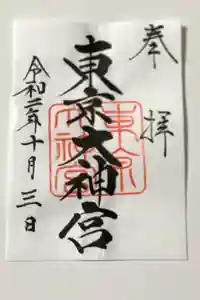 奉拝
東京大神宮
東京大神宮
令和二年十月三日